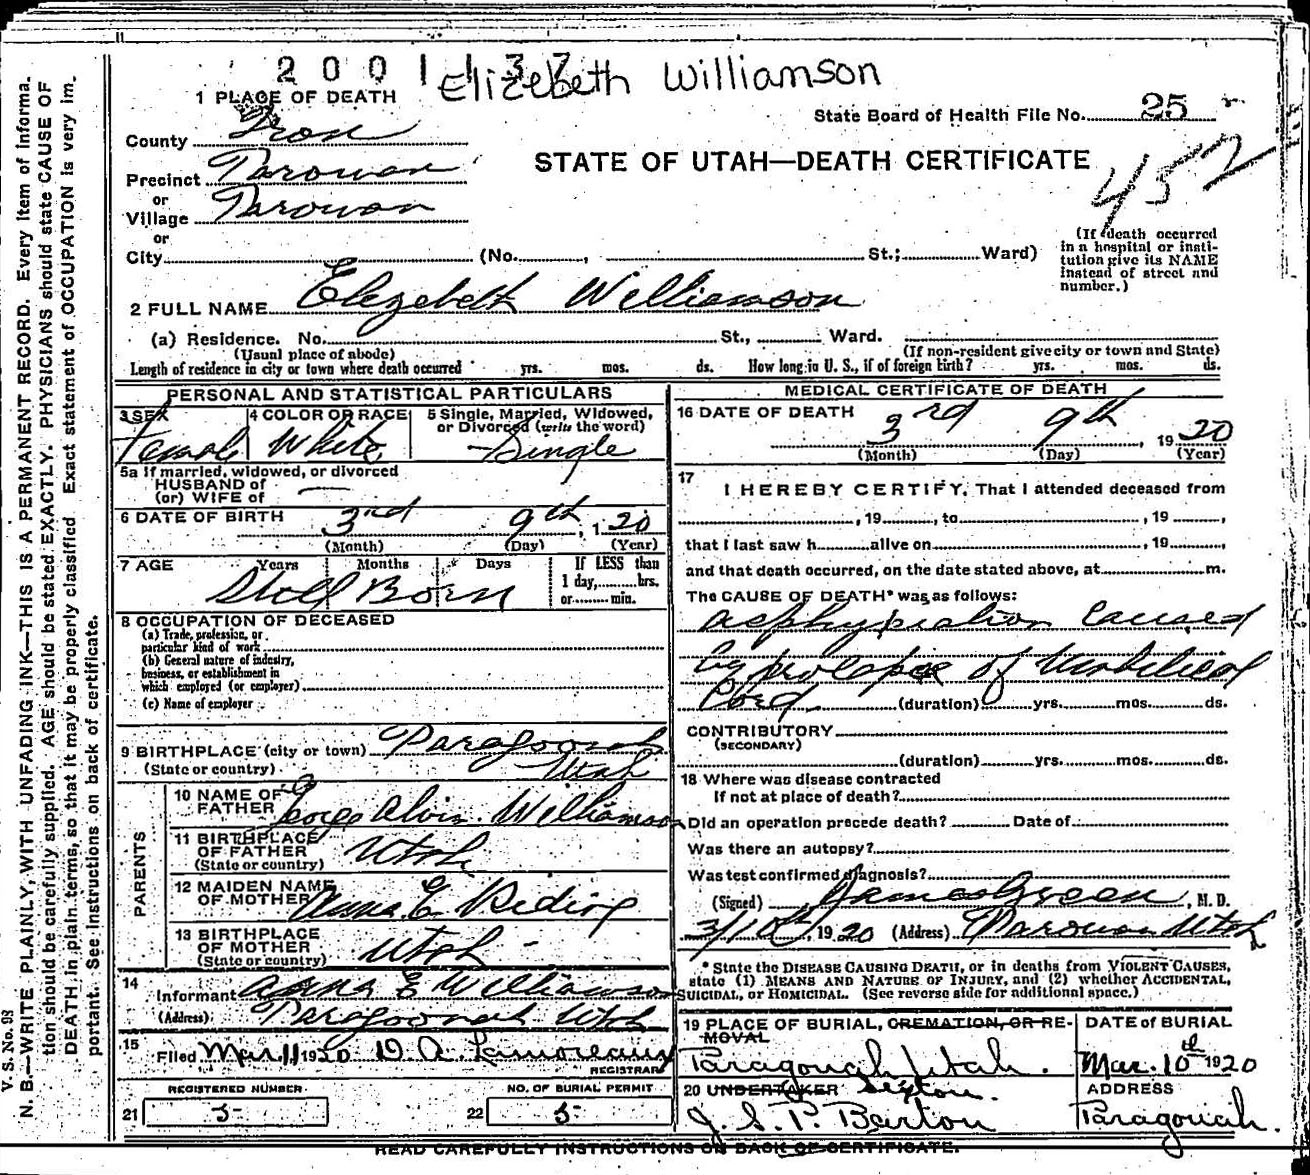 2001137
Elizebeth Williamson
1 PLACE OF DEATH
State Board of Health File No. 25
452
County Iron
STATE OF UTAH—DEATH CERTIFICATE
Precinct Parowan
or
Village Parowan
or
City (No. , St.; Ward)
(If death occurred in a hospital or insti-
tution give its NAME
instead of street and
number.)
2 FULL NAME Elizebeth Williamson
(a) Residence. No. St., Ward.
(Usual place of abode) (If non-resident give city or town and State)
Length of residence in city or town where death occurred yrs. mos. ds. How long in U. S., if of foreign birth? yrs. mos. ds.
PERSONAL AND STATISTICAL PARTICULARS
3 SEX Female
4 COLOR OR RACE White
5 Single, Married, Widowed,
or Divorced (write the word)
Single
5a If married, widowed, or divorced
HUSBAND of
(or) WIFE of
6 DATE OF BIRTH 3rd 9th, 1 20
(Month) (Day) (Year)
7 AGE Years Months Days If LESS than
1 day, hrs.
or min.
Still Born
8 OCCUPATION OF DECEASED
(a) Trade, profession, or
particular kind of work
(b) General nature of industry,
business, or establishment in
which employed (or employer)
(c) Name of employer
9 BIRTHPLACE (city or town) Paragoonah
(State or country) Utah
PARENTS
10 NAME OF
FATHER George Alvin Williamson
11 BIRTHPLACE
OF FATHER
(State or country) Utah
12 MAIDEN NAME
OF MOTHER Anna E Riding
13 BIRTHPLACE
OF MOTHER
(State or country) Utah -
14
Informant Anna E Williamson
(Address) Paragoonah Utah
15
Filed Mar 11 1920 D A Lamoreaux
REGISTRAR
REGISTERED NUMBER
21 5
NO. OF BURIAL PERMIT
22 5
MEDICAL CERTIFICATE OF DEATH
16 DATE OF DEATH
3rd 9th, 19 20
(Month) (Day) (Year)
17
I HEREBY CERTIFY, That I attended deceased from
, 19 , to , 19 ,
that I last saw h alive on , 19 ,
and that death occurred, on the date stated above, at m.
The CAUSE OF DEATH* was as follows:
asphyxiation caused
by prolapse of Umbilical
Cord. (duration) yrs. mos. ds.
CONTRIBUTORY
(SECONDARY)
(duration) yrs. mos. ds.
18 Where was disease contracted
If not at place of death?
Did an operation precede death? Date of
Was there an autopsy?
Was test confirmed diagnosis?
(Signed) James Green, M. D.
3/10th, 1920 (Address) Parowan Utah
* State the DISEASE CAUSING DEATH, or in deaths from VIOLENT CAUSES,
state (1) MEANS AND NATURE OF INJURY, and (2) whether ACCIDENTAL,
SUICIDAL, or HOMICIDAL. (See reverse side for additional space.)
19 PLACE OF BURIAL, CREMATION, OR RE-
MOVAL
Paragonah Utah.
DATE of BURIAL
Mar. 10th 1920
20 UNDERTAKER Sexton.
J. S. P. Barton
ADDRESS
Paragonah.
READ CAREFULLY INSTRUCTIONS ON BACK OF CERTIFICATE.
V. S. No. 98
N. B.—WRITE PLAINLY, WITH UNFADING INK—THIS IS A PERMANENT RECORD. Every item of informa-
tion should be carefully supplied. AGE should be stated EXACTLY. PHYSICIANS should state CAUSE OF
DEATH in plain terms, so that it may be properly classified. Exact statement of OCCUPATION is very im-
portant. See instructions on back of certificate.